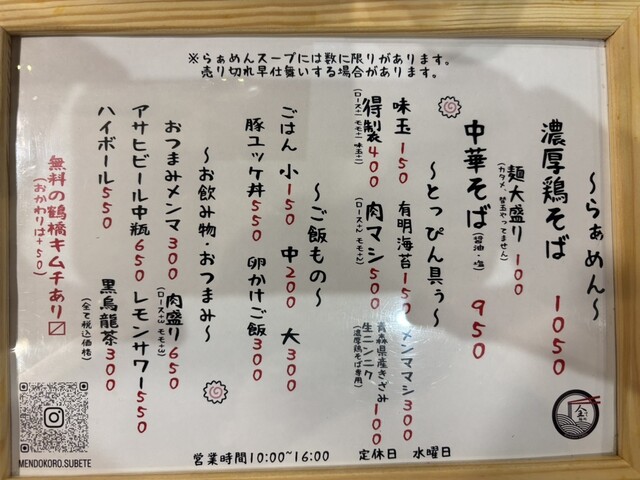 ※らぁめんスープには数に限りがあります。
売り切れ早仕舞いする場合があります。
～らぁめん～
濃厚鶏そば 1050
麺大盛り 100
(カタメ、替玉やってません)
中華そば(醤油・塩) 950
～とっぴん具ぅ～
味玉 150 有明海苔 150 メンママシ 300
得製 400 肉マシ 500
(ロース+1 モモ+1 味玉+1) (ロース+2 モモ+2)
青森県産きざみ
生ニンニク 100
(濃厚鶏そば専用)
～ご飯もの～
ごはん 小 150 中 200 大 300
豚ユッケ丼 550 卵かけご飯 300
～お飲み物・おつまみ～
おつまみメンマ 300 肉盛り 650
(ロース+3 モモ+3)
アサヒビール中瓶 650 レモンサワー 550
ハイボール 550 黒烏龍茶 300
(全て税込価格)
無料の鶴橋キムチあり
(おかわりは+50)
MENDOKORO.SUBETE
営業時間10:00~16:00 定休日 水曜日